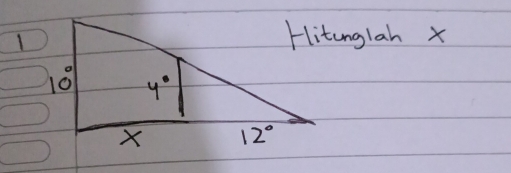 1 Hitunglah x
10°
4°
x 12°